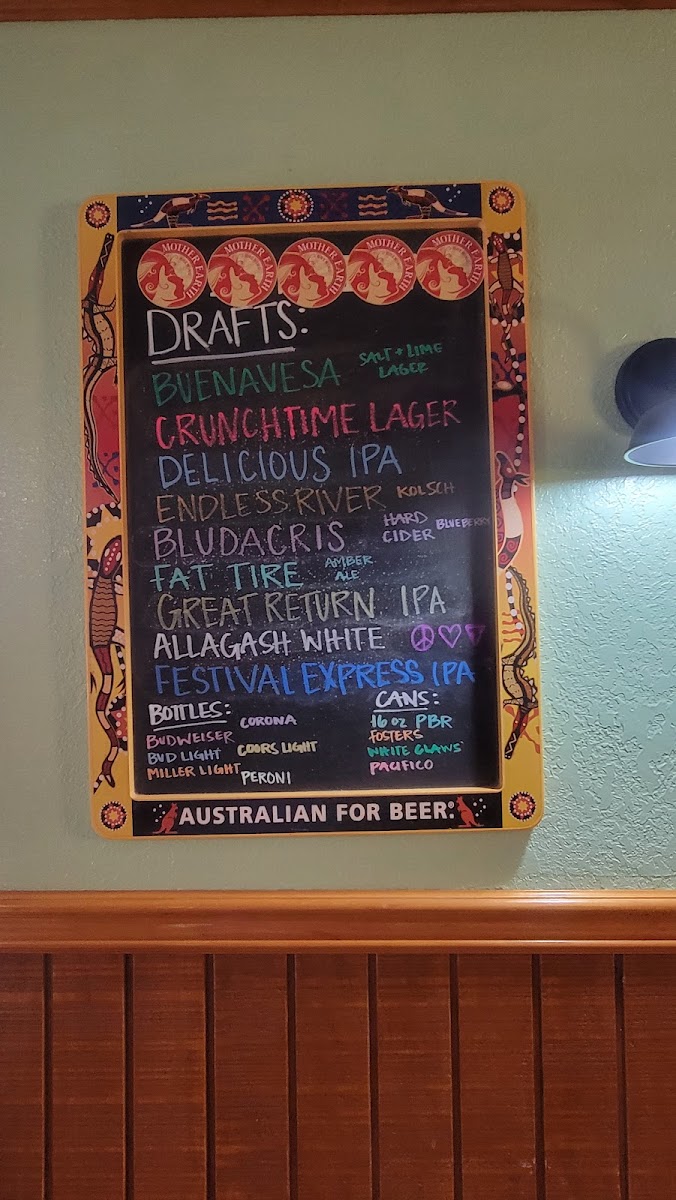 MOTHER EARTH MOTHER EARTH MOTHER EARTH MOTHER EARTH MOTHER EARTH
DRAFTS:
BUENAVESA SALT + LIME LAGER
CRUNCHTIME LAGER
DELICIOUS IPA
ENDLESS RIVER KOLSCH
BLUDACRIS HARD CIDER BLUEBERRY
FAT TIRE AMBER ALE
GREAT RETURN IPA
ALLAGASH WHITE
FESTIVAL EXPRESS IPA
BOTTLES:
CORONA
BUDWEISER
BUD LIGHT COORS LIGHT
MILLER LIGHT PERONI
CANS:
16 oz PBR
FOSTERS
WHITE CLAWS
PACIFICO
AUSTRALIAN FOR BEER.®